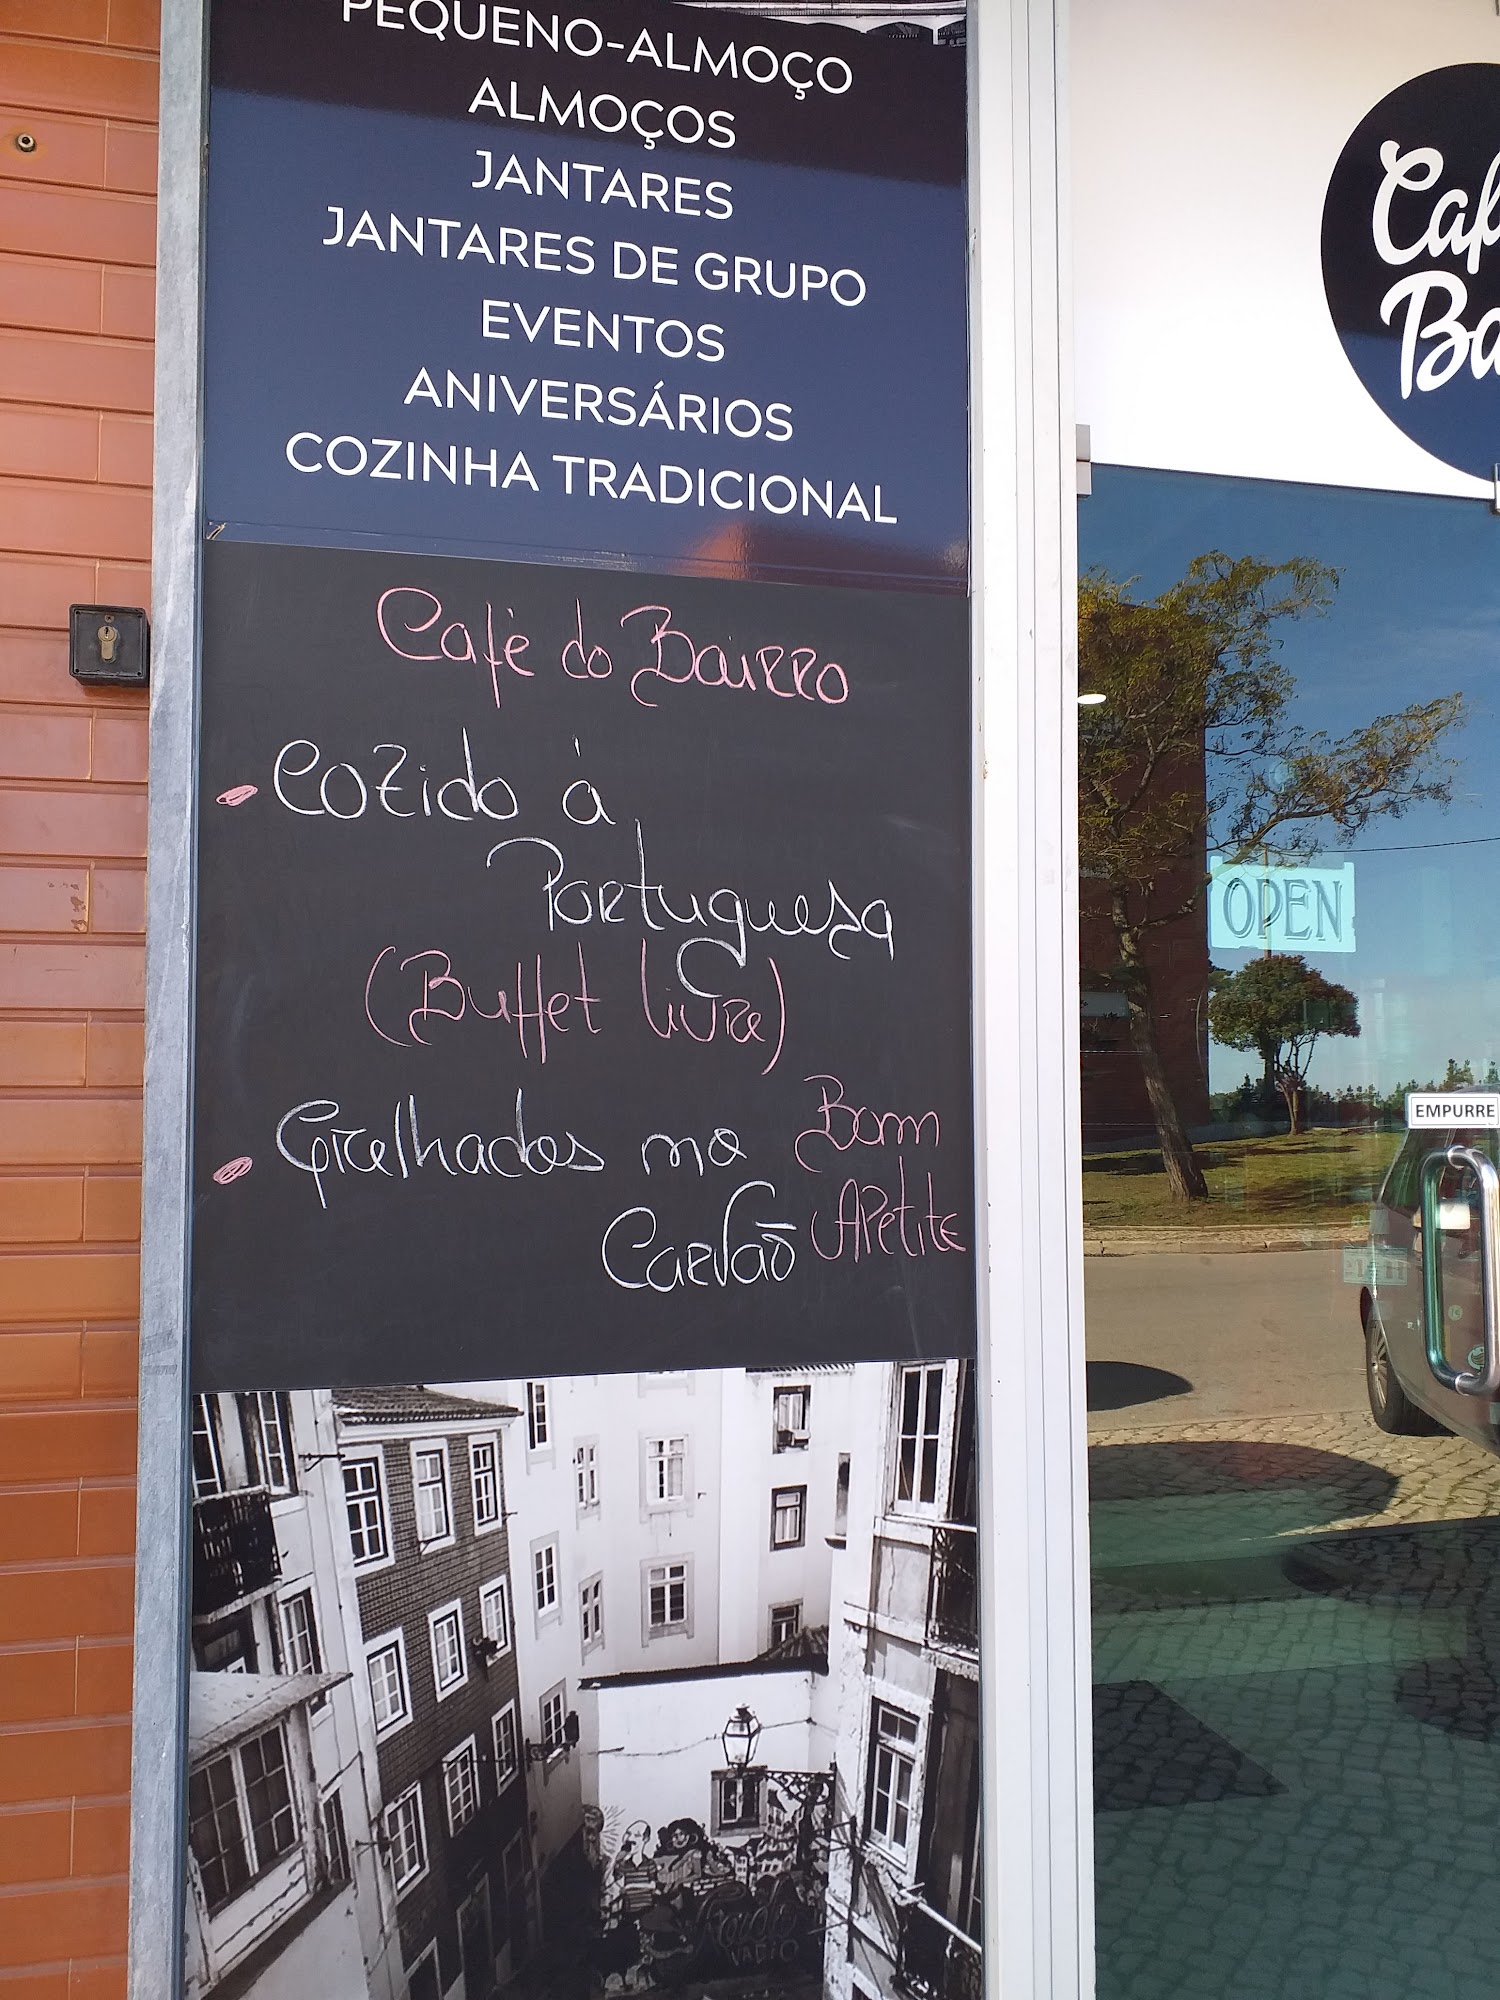 PEQUENO-ALMOÇO
ALMOÇOS
JANTARES
JANTARES DE GRUPO
EVENTOS
ANIVERSÁRIOS
COZINHA TRADICIONAL
Café do Bairro
Cozido à
Portuguesa
(Buffet livre)
Grelhados no
Carvão
Bom
Apetite
Caf
Ba
OPEN
EMPURRE